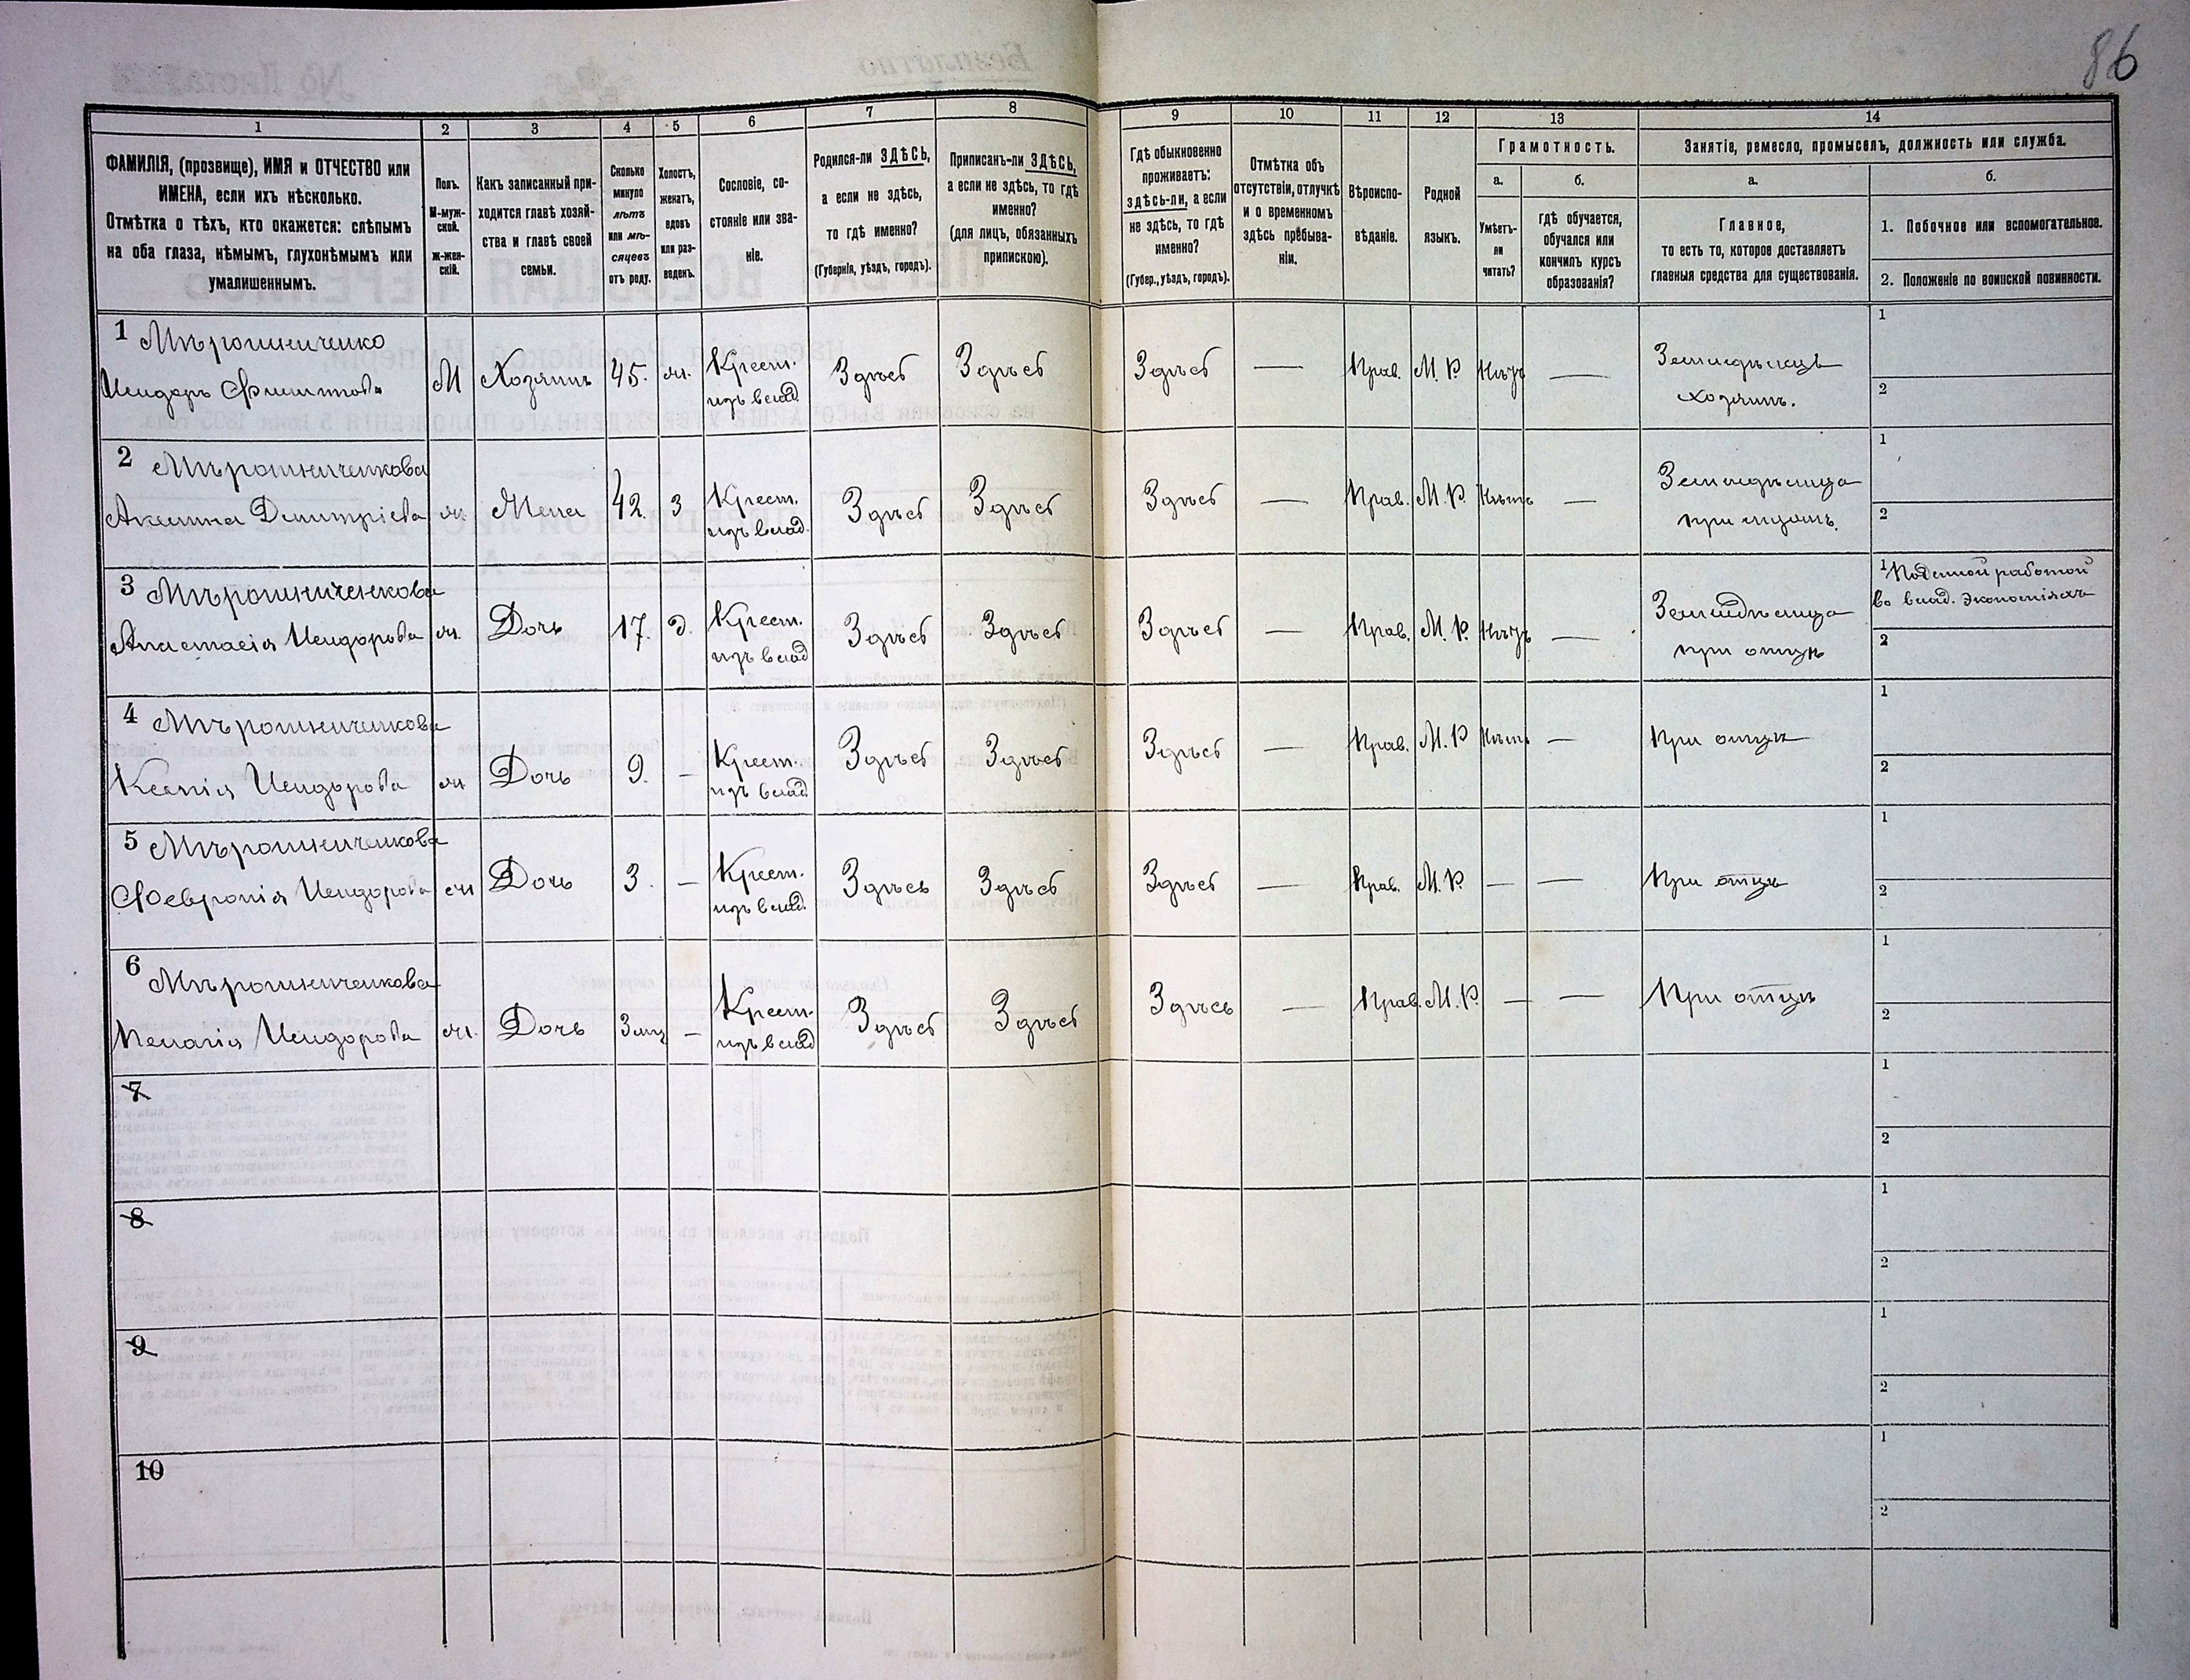 86
1
2
3
4
5
6
7
8
9
10
11
12
13
14
ФАМИЛІЯ, (прозвище), ИМЯ и ОТЧЕСТВО или
ИМЕНА, если ихъ нѣсколько.
Отмѣтка о тѣхъ, кто окажется: слѣпымъ
на оба глаза, нѣмымъ, глухонѣмымъ или
умалишеннымъ.
Полъ.
М-муж-
ской.
ж-жен-
скій.
Какъ записанный при-
ходится главѣ хозяй-
ства и главѣ своей
семьи.
Сколько
минуло
лѣтъ
или мѣ-
сяцевъ
отъ роду.
Холостъ,
женатъ,
вдовъ
или раз-
веденъ.
Сословіе, со-
стояніе или зва-
ніе.
Родился-ли ЗДѢСЬ,
а если не здѣсь,
то гдѣ именно?
(Губернія, уѣздъ, городъ).
Приписанъ-ли ЗДѢСЬ,
а если не здѣсь, то гдѣ
именно?
(для лицъ, обязанныхъ
припискою).
Гдѣ обыкновенно
проживаетъ:
здѣсь-ли, а если
не здѣсь, то гдѣ
именно?
(Губер., уѣздъ, городъ).
Отмѣтка объ
отсутствіи, отлучкѣ
и о временномъ
здѣсь пребыва-
ніи.
Вѣроиспо-
вѣданіе.
Родной
языкъ.
Грамотность.
а.
Умѣетъ-
ли
читать?
б.
гдѣ обучается,
обучался или
кончилъ курсъ
образованія?
Занятіе, ремесло, промыселъ, должность или служба.
а.
Главное,
то есть то, которое доставляетъ
главныя средства для существованія.
б.
1. Побочное или вспомогательное.
2. Положеніе по воинской повинности.
1 Мѣрошниченко
Исидоръ Филиповъ
М Хозяинъ 45. ж. Крест. Здѣсь Здѣсь Здѣсь — Прав. М. Р. —
изъ влад.
Земледѣлецъ
хозяинъ.
1
2
2 Мѣрошниченкова
Акилина Димитріева
ж. Жена 42. З Крест. Здѣсь Здѣсь Здѣсь — Прав. М. Р. Нѣтъ —
изъ влад.
Земледѣлица
при
1
2
3 Мѣрошниченкова
Анастасія Исидорова
ж. Дочь 17. Д. Крест. Здѣсь Здѣсь Здѣсь — Прав. М. Р. —
изъ влад
Земледѣлица
при отцѣ
1 Поденной работой
во влад. экономіяхъ
2
4 Мѣрошниченкова
Ксенія Исидорова
ж Дочь 9. — Крест. Здѣсь Здѣсь Здѣсь — Прав. М. Р Нѣтъ — При отцѣ
изъ влад.
1
2
5 Мѣрошниченкова
Февронія Исидорова
ж Дочь 3. — Крест. Здѣсь Здѣсь Здѣсь — Прав. М. Р. — — При отцѣ
изъ влад.
1
2
6 Мѣрошниченкова
Пелагія Исидорова
ж. Дочь 3 мц — Крест. Здѣсь Здѣсь Здѣсь — Прав. М. Р. — — При отцѣ
изъ влад
1
2
7
1
2
8
1
2
9
1
2
10
1
2